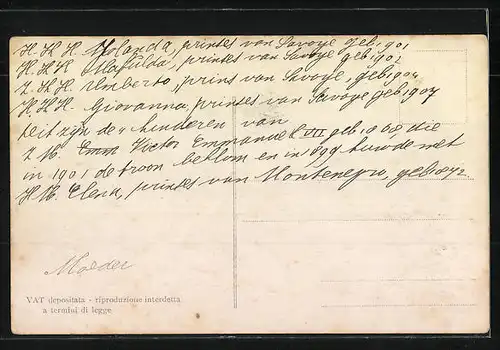 H.K.H. Yolanda, prinses van Savoye geb. 1901
H.K.H. Mafalda, prinses van Savoye geb. 1902
Z.K.H. Umberto, prins van Savoye, geb. 1904
H.K.H. Giovanna, prinses van Savoye geb. 1907
Dit zijn de 4 kinderen van
Z.M. Victor Emmanuel III geb. die
in 1901 de troon beklom en in 1899 huwde met
H.M. Elena, prinses van Montenegro, geb.
Moeder
VAT depositata - riproduzione interdetta
a termini di legge